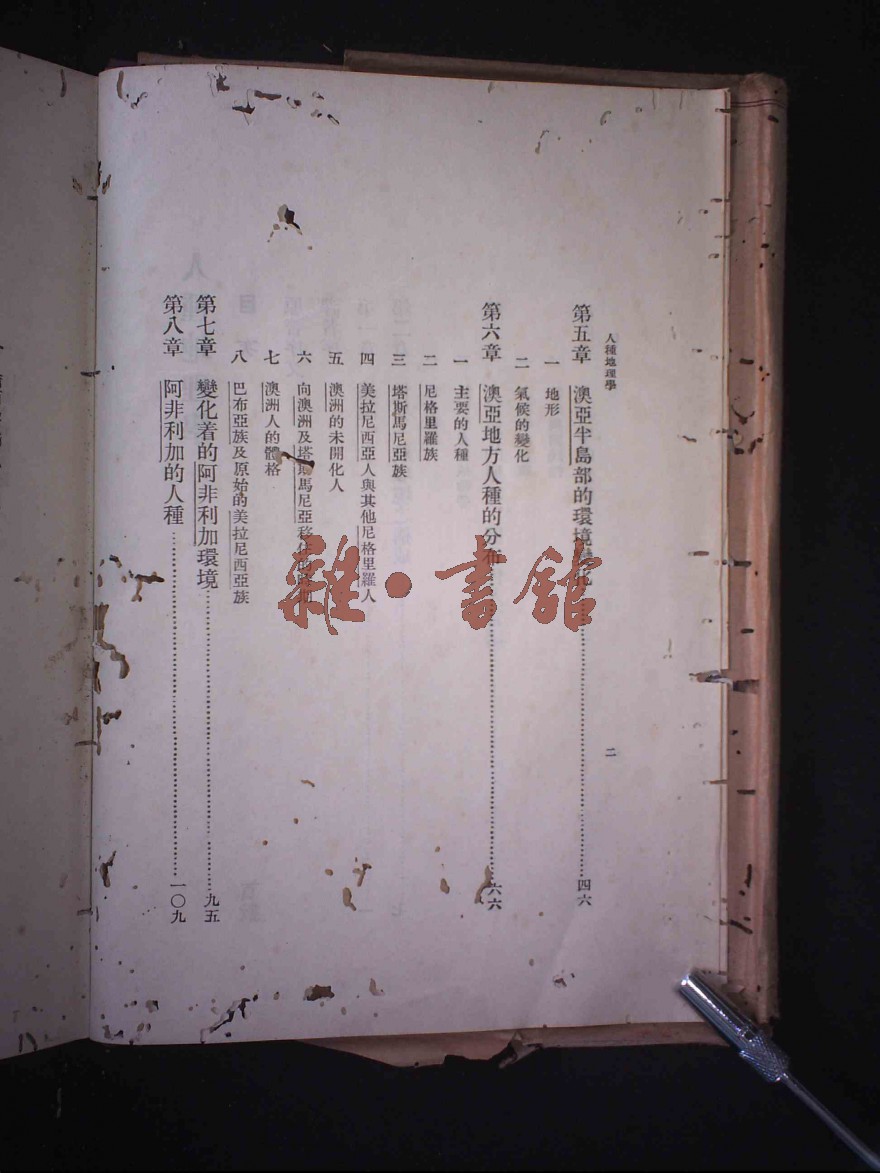 人種地理學
二
第五章 澳亞半島部的環境變化……四六
一 地形
二 氣候的變化
第六章 澳亞地方人種的分布……六六
一 主要的人種
二 尼格里羅族
三 塔斯馬尼亞族
四 美拉尼西亞人與其他尼格里羅人
五 澳洲的未開化人
六 向澳洲及塔斯馬尼亞移住的
七 澳洲人的體格
八 巴布亞族及原始的美拉尼西亞族
第七章 變化着的阿非利加環境……九五
第八章 阿非利加的人種……一〇九
雜·書館